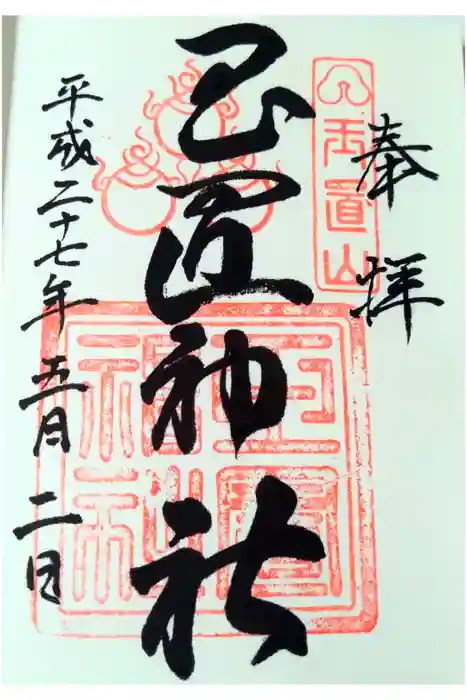 奉拝
玉置山
玉置神社
平成二十七年五月二日